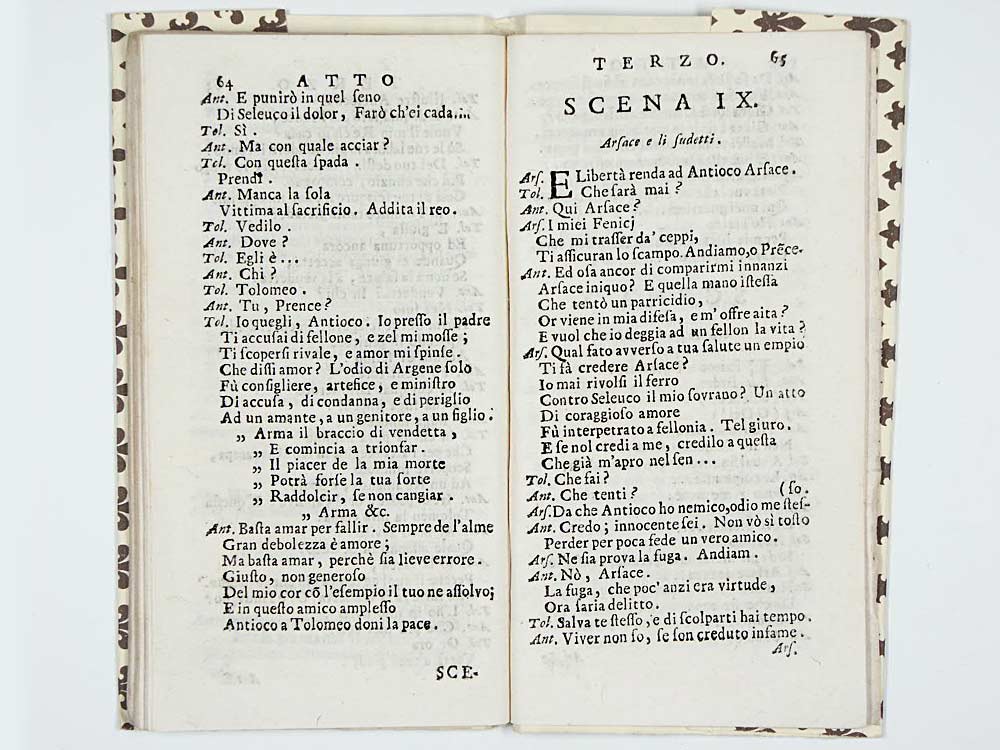 64 ATTO
Ant. E punirò in quel ſeno
Di Seleuco il dolor, Farò ch'ei cada....
Tol. Sì.
Ant. Ma con quale acciar?
Tol. Con queſta ſpada.
Prendi.
Ant. Manca la ſola
Vittima al ſacrificio. Addita il reo.
Tol. Vedilo.
Ant. Dove?
Tol. Egli è...
Ant. Chi?
Tol. Tolomeo.
Ant. Tu, Prence?
Tol. Io quegli, Antioco. Io preſſo il padre
Ti accuſai di fellone, e zel mi moſſe;
Ti ſcoperſi rivale, e amor mi ſpinſe.
Che diſſi amor? L'odio di Argene ſolo
Fù conſigliere, artefice, e miniſtro
Di accuſa, di condanna, e di periglio
Ad un amante, a un genitore, a un figlio.
„ Arma il braccio di vendetta,
„ E comincia a trionfar.
„ Il piacer de la mia morte
„ Potrà forſe la tua ſorte
„ Raddolcir, ſe non cangiar.
„ Arma &c.
Ant. Baſta amar per fallir. Sempre de l'alme
Gran debolezza è amore;
Ma baſta amar, perchè ſia lieve errore.
Giuſto, non generoſo
Del mio cor cõ l'eſempio il tuo ne aſſolvo;
E in queſto amico ampleſſo
Antioco a Tolomeo doni la pace.
SCE-
TERZO. 65
SCENA IX.
Arſace e li ſudetti.
Arſ. E Libertà renda ad Antioco Arſace.
Tol. Che ſarà mai?
Ant. Qui Arſace?
Arſ. I miei Fenicj
Che mi traſſer da' ceppi,
Ti aſſicuran lo ſcampo. Andiamo, o Prẽce.
Ant. Ed oſa ancor di comparirmi innanzi
Arſace iniquo? E quella mano iſteſſa
Che tentò un parricidio,
Or viene in mia difeſa, e m'offre aita?
E vuol che io deggia ad un fellon la vita?
Arſ. Qual fato avverſo a tua ſalute un empio
Ti fà credere Arſace?
Io mai rivolſi il ferro
Contro Seleuco il mio ſovrano? Un atto
Di coraggioſo amore
Fù interpetrato a fellonia. Tel giuro.
E ſe nol credi a me, credilo a queſta
Che già m'apro nel ſen...
Tol. Che fai?
Ant. Che tenti? (ſo.
Arſ. Da che Antioco ho nemico, odio me ſteſ-
Ant. Credo; innocente ſei. Non vò sì toſto
Perder per poca fede un vero amico.
Arſ. Ne ſia prova la fuga. Andiam.
Ant. Nò, Arſace.
La fuga, che poc'anzi era virtude,
Ora ſaria delitto.
Tol. Salva te ſteſſo, e di ſcolparti hai tempo.
Ant. Viver non ſo, ſe ſon creduto infame.
Arſ.